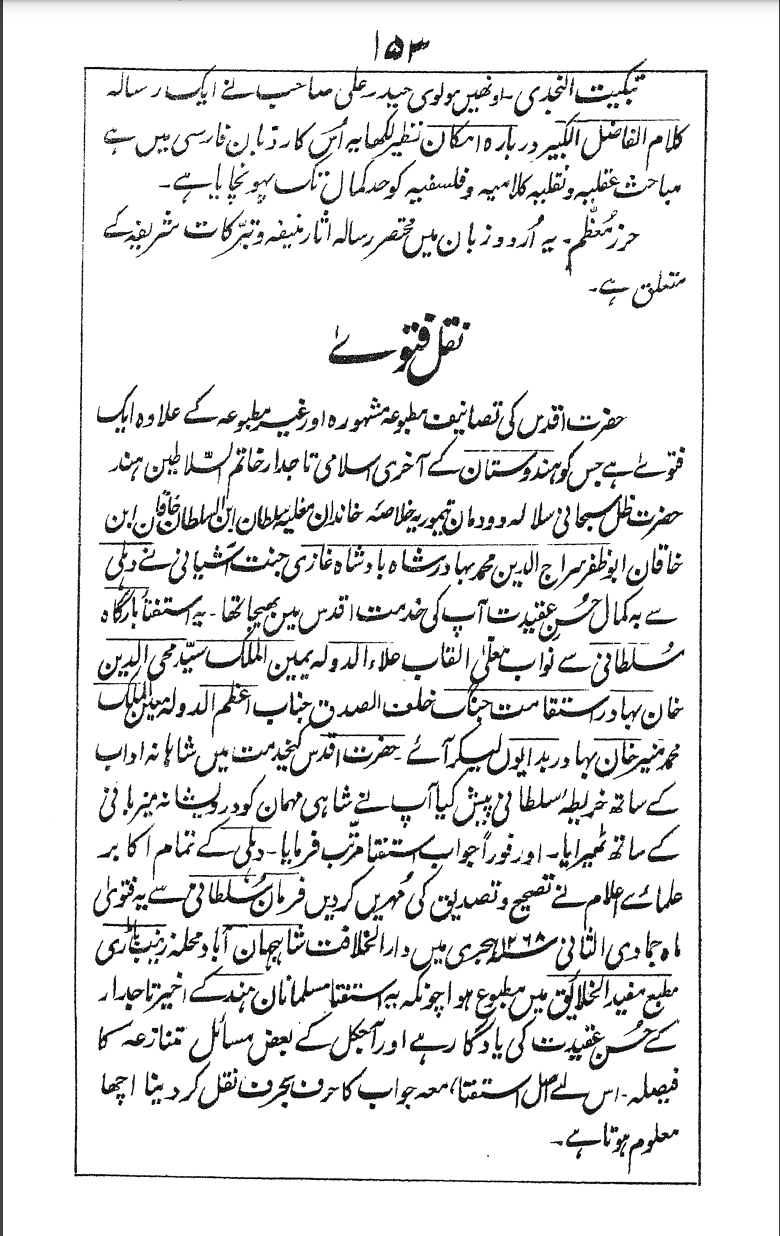 ۱۵۳
تبکیت النجدی ۔ اونھیں مولوی حیدر علی صاحب نے ایک رسالہ
کلام الفاضل الکبیر دربارہ امکان نظیر لکھا یہ اُس کا رد زبان فارسی میں ہے
مباحث عقلیہ و نقلیہ کلامیہ و فلسفیہ کو حد کمال تک پہونچایا ہے۔
حرز معظم ۔ یہ اُردو زبان میں مختصر رسالہ اثار منیفہ و تبرکات شریفہ کے
متعلق ہے۔
نقل فتوےٰ
حضرت اقدس کی تصانیف مطبوعہ مشہورہ اور غیر مطبوعہ کے علاوہ ایک
فتوےٰ ہے جس کو ہندوستان کے آخری اسلامی تاجدار خاتم السّلاطین ہند
حضرت ظل سبحانی سلالہ دودمان تیموریہ خلاصہ خاندان مغلیہ سلطان ابن السلطان خاقان ابن
خاقان ابو ظفر سراج الدین محمد بہادر شاہ بادشاہ غازی جنت آشیانی نے دہلی
سے بہ کمال حُسنِ عقیدت آپ کی خدمت اقدس میں بھیجا تھا ۔ یہ استفتا بارگاہ
سُلطانی سے نواب معلّی القاب علاء الدولہ یمین الملک سیّد محی الدین
خان بہادر استقامت جنگ خلف الصدق جناب اعظم الدولہ معین الملک
محمد منیر خان بہادر بدایوں لیکر آئے ۔ حضرت اقدس کیخدمت میں شاہانہ اداب
کے ساتھ خریطہ سُلطانی پیش کیا آپ نے شاہی مہمان کو درویشانہ میزبانی
کے ساتھ ٹھیرایا۔ اور فوراً جواب استفتا مرتّب فرمایا۔ دہلی کے تمام اکابر
علمائے اعلام نے تصحیح و تصدیق کی مُہریں کردیں فرمان سُلطانی سے یہ فتویٰ
ماہ جمادی الثانی ۱۲۶۸ ہجری میں دار الخلافت شاہجہان آباد محلہ زینت باڑی
مطبع مفید الخلائق میں مطبوع ہوا چونکہ یہ استفتا مسلمانان ہند کے اخیر تاجدار
کے حُسن عقیدت کی یادگار ہے اور آجکل کے بعض مسائل متنازعہ کا
فیصلہ۔ اس لئے اصل استفتا، معہ جواب کا حرف بحرف نقل کر دینا اچھا
معلوم ہوتا ہے۔